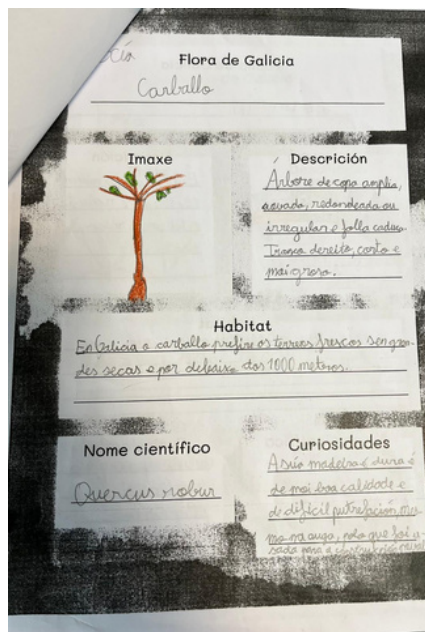 cía
Flora de Galicia
Carballo
Imaxe
Descrición
Árbore de copa amplia,
aovada, redondeada ou
irregular e folla caduca.
Tronco dereito, corto e
moi groso.
Habitat
En Galicia o carballo prefire os terreos frescos sen gran-
des secas e por debaixo dos 1000 metros.
Nome científico
Quercus robur
Curiosidades
A súa madeira é dura é
de moi boa calidade e
de difícil putrefación, mes-
mo na auga, polo que foi u-
sada para a construción naval